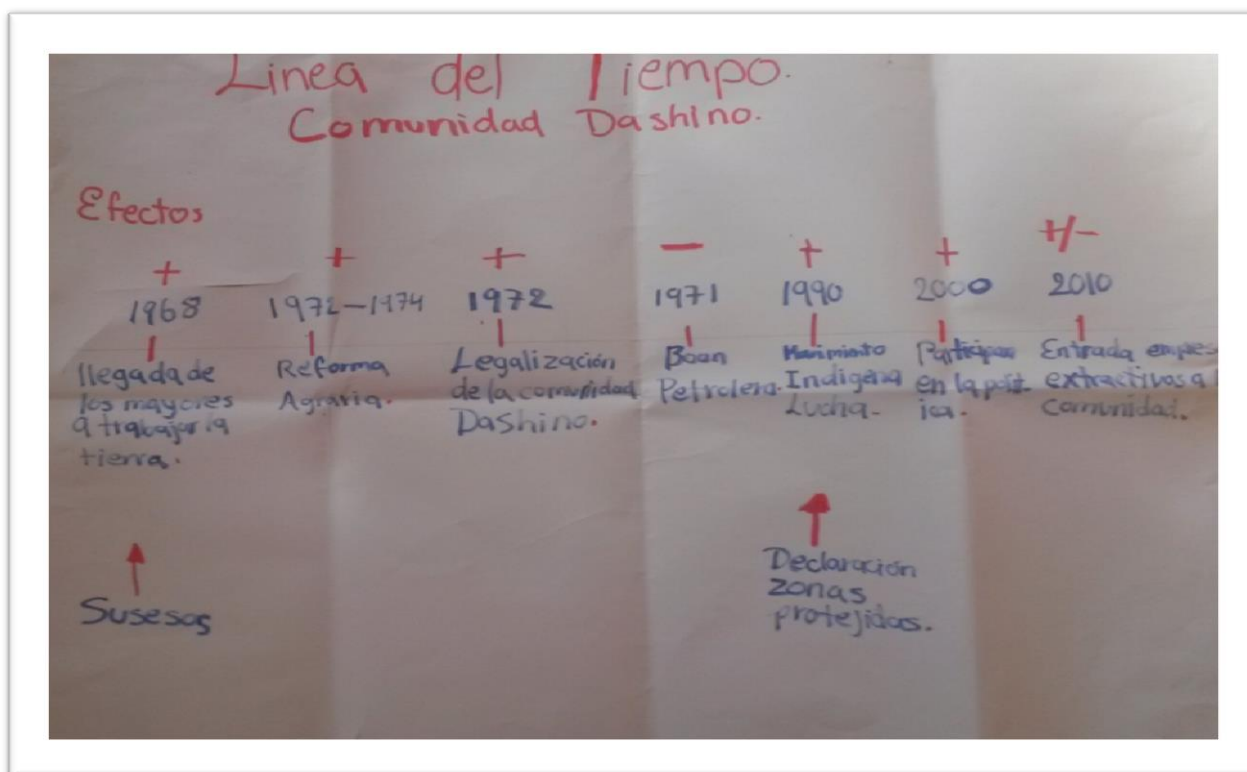 Linea del Tiempo.
Comunidad Dashino.
Efectos
+ + + — + + +/-
1968 1972-1974 1972 1971 1990 2000 2010
llegada de
los mayores
a trabajar la
tierra.
Reforma
Agraria.
Legalización
de la comunidad
Dashino.
Boan
Petrolera.
Indigena
Lucha.
en la
Entrada
extractivas a
comunidad.
Susesos
Declaración
zonas
protejidas.